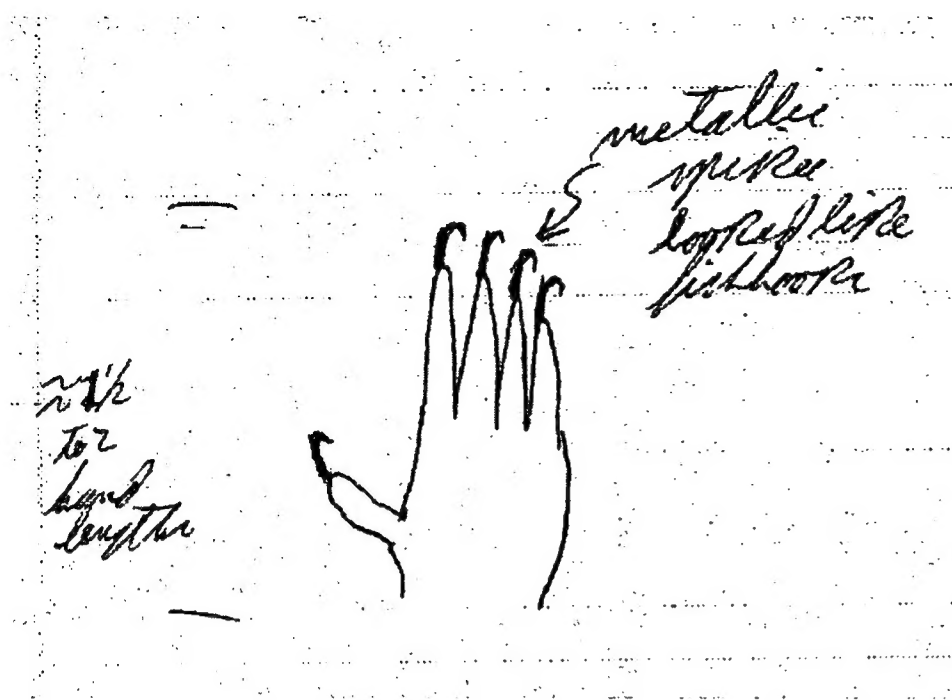 metallic
spikes
looked like
fishhooks
1½
to 2
hand
lengths